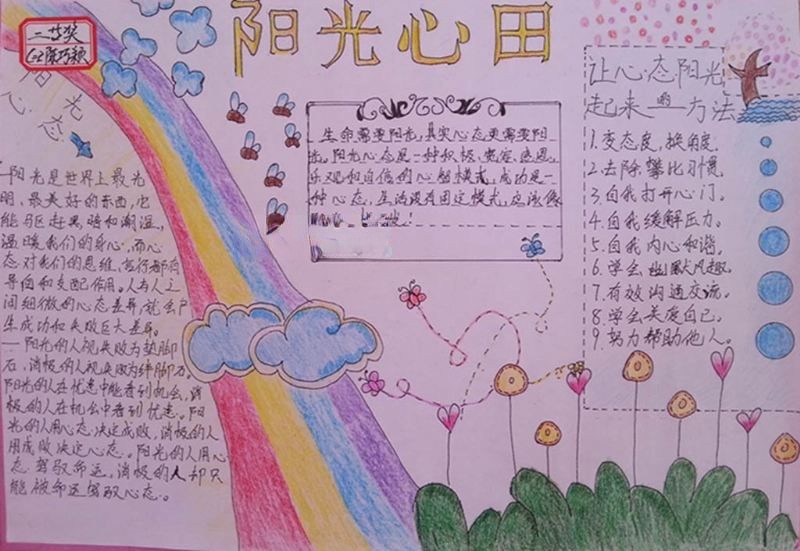 阳光心田
二等奖
陈巧颖
阳光
心态
阳光是世界上最光
明、最美好的东西,它
能马区赶黑暗和潮湿,
温暖我们的身心,而心
态对我们的思维、言行都有
导向和支配作用。人与人之
间细微的心态差异,就会产
生成功和失败巨大差异。
一阳光的人视失败为垫脚
石,消极的人视失败为绊脚石,
阳光的人在忧患中能看到机会,消
极的人在机会中看到忧患。阳
光的人用心态决定成败,消极的人
用成败决定心态。阳光的人用心
态驾驭命运,消极的人却只
能被命运驾驭心态。
生命需要阳光,其实心态更需要阳
光。阳光心态是一种积极、宽容、感恩、
乐观和自信的心智模式,成功是一
种心态,生活没有固定模式,应该像
让心态阳光
起来的一方法
1.变态度,换角度。
2.去除攀比习惯。
3.自我打开心门。
4.自我缓解压力。
5.自我内心和谐。
6.学会幽默风趣。
7.有效沟通交流。
8.学会关度自己。
9.努力帮助他人。